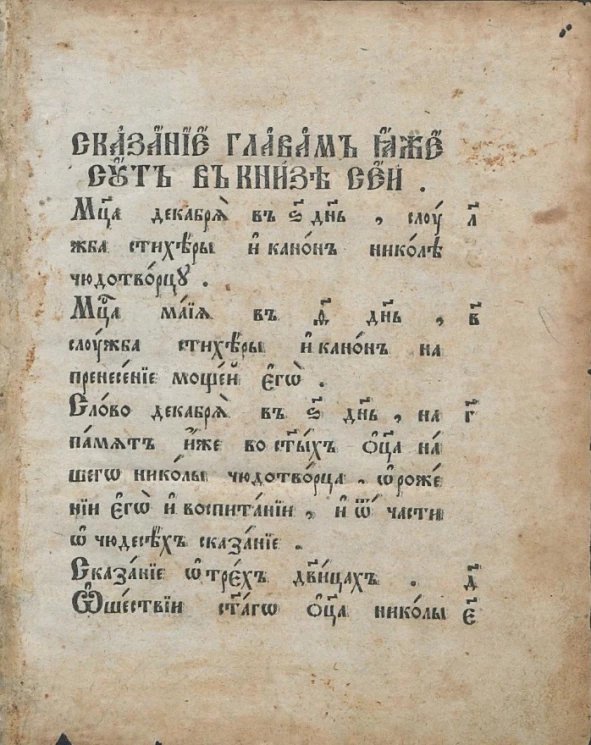 Ска́за́нїе гла́ва́мъ ꙗ҆́же
сꙋ́ть въ кни́зѣ се́й .
Мцⷭ҇а декабрѧ̀ въ ѕ҃ дн҃ь , слоу́ а҃
жба стихѣ́ры и҆ кано́нъ нико́лѣ
чюдотво́рцꙋ .
Мцⷭ҇а ма́їѧ въ ѳ҃ дн҃ь , в҃
слоу́жба стихѣ́ры и҆ кано́нъ на
пренесе́нїе моще́й є҆гѡ̀ .
Сло́во декабрѧ̀ въ ѕ҃ дн҃ь , на г҃
па́мѧть и҆́же во ст҃ы́хъ ѻ҆ц҃а̀ на́
шегѡ нико́лы чюдотво́рца , ѡ҆ роже́
нїи є҆гѡ̀ и҆ воспита́нїи , и҆ ѿ ча́сти
ѡ҆ чюдесѣ́хъ сказа́нїе .
Сказа́нїе ѡ҆ тре́хъ дв҃и́цахъ . д҃
Ѡ҆ше́ствїи ст҃а́гѡ ѻ҆ц҃а̀ нико́лы є҃